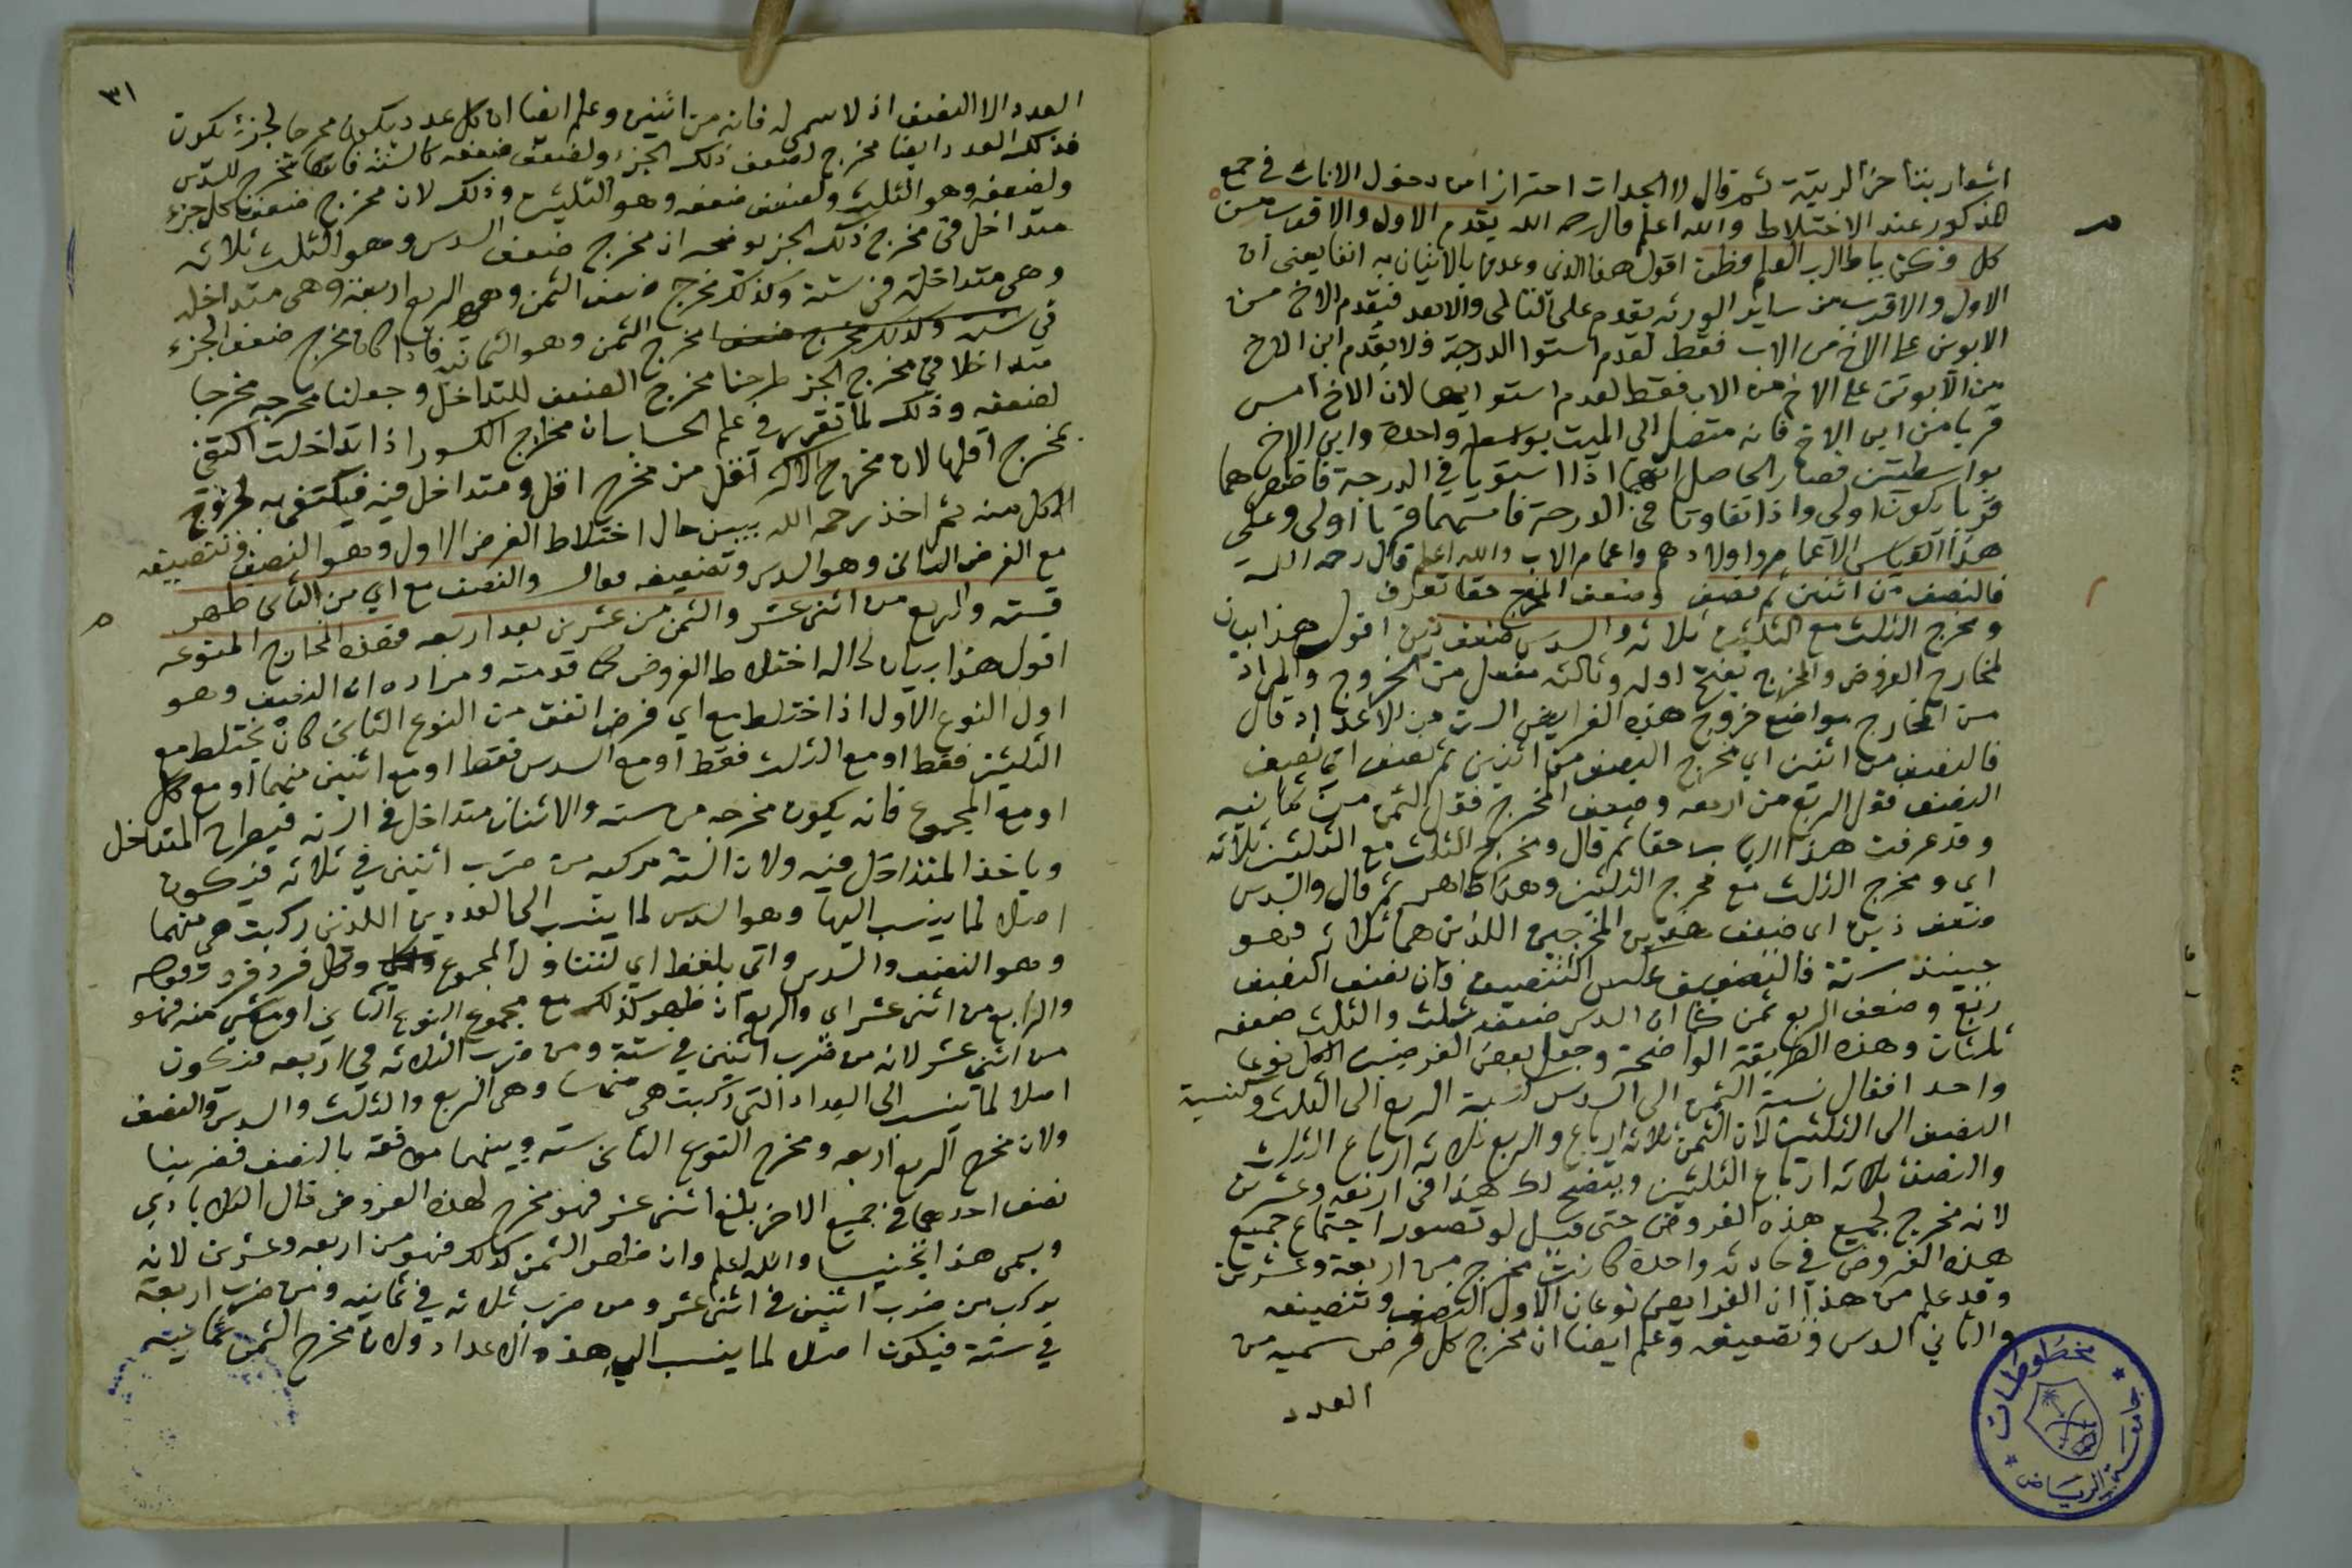 اشعار بتأخر الرتبة ثم قال لا الجدات احترازا من دخول الاناث في جمع
مذكور عند الاختلاط والله اعلم قال رحمه الله يقدم الاول والاقرب من
كل وكن يا طالب العلم فطن اقول هذا الذي وعدنا بالاتيان به انفا يعني ان
الاول والاقرب من ساير الورثه يقدم على التالى والابعد فيقدم الاخ من
الابوين على الاخ من الاب فقط لعدم استوا الدرجة فلا يقدم ابن الاخ
من الابوين على الاخ من الاب فقط لعدم استوايهما لان الاخ امس
قربا من ابن الاخ فانه متصل الي الميت بواسطة واحدة وابن الاخ
بواسطتين فصار الحاصل انهما اذا استويا في الدرجة فاخصهما
قربا يكون اولى واذا تفاوتا في الدرجة فامسهما قربا اولى وعلى
هذا القياس الاعمام واولادهم واعمام الاب والله اعلم قال رحمه الله
فالنصف من اثنين ثم نصف وضعف المخرج حقا تعرف
ومخرج الثلث مع الثلثين ثلاثه والسدس ضعف ذين اقول هذا بيان
لمخارج الفروض والمخرج بفتح اوله وثالثه مفعل من الخروج والمراد
من المخارج مواضع خروج هذه الفرايض الست من الاعداد قال
فالنصف من اثنين اي مخرج النصف من اثنين ثم نصف اي نصف
النصف فقل الربع من اربعه وضعف المخرج فقل الثمن من ثمانيه
وقد عرفت هذا حقا ثم قال ومخرج الثلث مع الثلثين ثلاثه
اي ومخرج الثلث مع مخرج الثلثين وهذا ظاهر ثم قال والسدس
ضعف ذين اى ضعف هذين المخرجين اللذين هما ثلاثه فهو
حينيذ ستة فالتضعيف عكس التنصيف فان نصف النصف
ربع وضعف الربع ثمن كما ان السدس ضعفه ثلث والثلث ضعفه
ثلثان وهذه الطريقة الواضحة وجعل بعض الفرضيين الكل نوعا
واحدا فقال نسبة الثمن الى السدس كنسبة الربع الى الثلث وكنسبة
النصف الى الثلثين لان الثمن ثلاثه ارباع والربع ثلاثه ارباع الثلث
والنصف ثلاثه ارباع الثلثين ويتضح لك هذا في اربعه وعشرين
لانه مخرج لجميع هذه الفروض حتى قيل لو تصور اجتماع جميع
هذه الفروض في حادثه واحدة كانت تخرج من اربعة وعشرين
وقد علم من هذا ان الفرايض نوعان الاول النصف وتنصيفه
والثاني السدس وتضعيفه وعلم ايضا ان مخرج كل فرض سميه من
العدد
مخطوطات
جامعة الرياض
٣١
العدد الا النصف اذ لا سمي له فانه من اثنين وعلم ايضا ان كل عدد يكون مخرجا لجزء يكون
فذلك العدد ايضا مخرج لضعف ذلك الجزء ولضعف ضعفه كالستة فانها مخرج للسدس
ولضعفه وهو الثلث ولضعف ضعفه وهو الثلثين وذلك لان مخرج ضعف كل جزء
متداخل في مخرج ذلك الجزء يوضحه ان مخرج ضعف السدس وهو الثلث ثلاثه
وهى متداخلة في ستة وكذلك مخرج ضعف الثمن وهى الربع اربعة وهى متداخله
في ستة وكذلك مخرج ضعف مخرج الثمن وهو الثمانيه فاذا كان مخرج ضعف الجزء
متداخلا في مخرج الجزء طرحنا مخرج الضعف للتداخل وجعلنا مخرجه مخرجا
لضعفه وذلك لما تقرر في علم الحساب ان مخارج الكسور اذا تداخلت اكتفي
بمخرج اقلها لان مخرج الاكثر اقل من مخرج اقل ومتداخل فيه فيكتفى به لخروج
الكل منه ثم اخذ رحمه الله يبين حال اختلاط الفرض الاول وهو النصف وتنصيفه
مع الفرض الثانى وهو السدس وتضعيفه فقال والنصف مع اي من الثانى ظهر
فسته والربع من اثني عشر والثمن من عشرين بعد اربعه فهذه المخارج المتنوعه
اقول هذا بيان لحاله اختلاط الفروض كما قدمته ومراده ان النصف وهو
اول النوع الاول اذا اختلط مع اي فرض اتفق من النوع الثانى كان يختلط مع
الثلثين فقط او مع الثلث فقط او مع السدس فقط او مع اثنين منهما او مع كل
او مع المجموع فانه يكون مخرجه من سته والاثنان متداخل في السته فيطرح المتداخل
وياخذ المتداخل فيه ولان الستة مركبه من ضرب اثنين في ثلاثه فتكون
اصلا لما ينسب اليها وهو السدس لما ينسب الى العددين اللذين ركبت هي منهما
وهو النصف والسدس واتي بلفظ اي لتتناول المجموع وكل فرد فرد وقوله
والرابع من اثنى عشر اى والربع ان ظهر كذلك مع مجموع النوع الثانى او مع شي منه فهو
من اثني عشر لانه من ضرب اثنين في ستة ومن ضرب الثلاثه في اربعه فتكون
اصلا لما ينسب الى الاعداد التي ركبت هي منها وهى الربع والثلث والسدس والنصف
ولان مخرج الربع اربعه ومخرج النوع الثانى سته وبينهما موافقة بالنصف فضربنا
نصف احدهما في جميع الاخر بلغ اثنى عشر فهو مخرج لهذه الفروض قال الكلابادي
ويسمى هذا تجنيسا والله اعلم وان ظهر الثمن كذلك فهو من اربعه وعشرين لانه
يركب من ضرب اثنين في اثنى عشر ومن ضرب ثلاثه في ثمانيه ومن ضرب اربعة
في ستة فيكون اصلا لما ينسب الي هذه الاعداد ولان مخرج الثمن ثمانيه